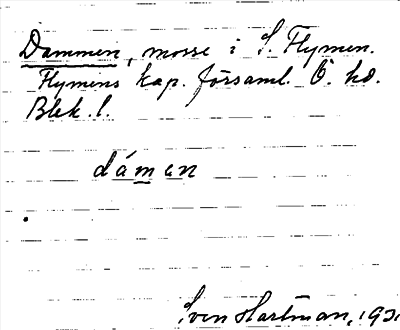 Dammen, mosse i S. Flymen.
Flymens kap. församl. Ö. hd.
Blek. l.
dámen
Sven Hartman, 193